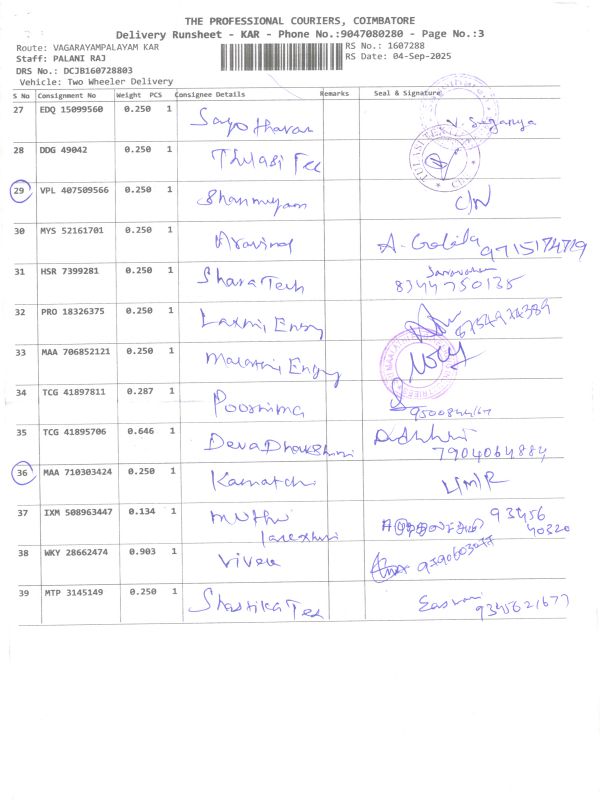 THE PROFESSIONAL COURIERS, COIMBATORE
Delivery Runsheet - KAR - Phone No.:9047080280 - Page No.:3
Route: VAGARAYAMPALAYAM KAR RS No.: 1607288
Staff: PALANI RAJ RS Date: 04-Sep-2025
DRS No.: DCJB160728803
Vehicle: Two Wheeler Delivery
S No Consignment No Weight PCS Consignee Details Remarks Seal & Signature
27 EDQ 15099560 0.250 1 V. Suganya
28 DDG 49042 0.250 1 Thulasi Tex
29 VPL 407509566 0.250 1 Shanmugam C/N
30 MYS 52161701 0.250 1 Aravind A. Gokila 9715174719
31 HSR 7399281 0.250 1 Shara Tech 8344750135
32 PRO 18326375 0.250 1 Laxmi Engg
33 MAA 706852121 0.250 1 Engg
34 TCG 41897811 0.287 1 Poornima
35 TCG 41895706 0.646 1 Deva Dharshini 7904064884
36 MAA 710303424 0.250 1 Kamatchi
37 IXM 508963447 0.134 1 Muthu 93456
40320
38 WKY 28662474 0.903 1 Vivek
39 MTP 3145149 0.250 1 Shastika Tex Easwari 9345621677